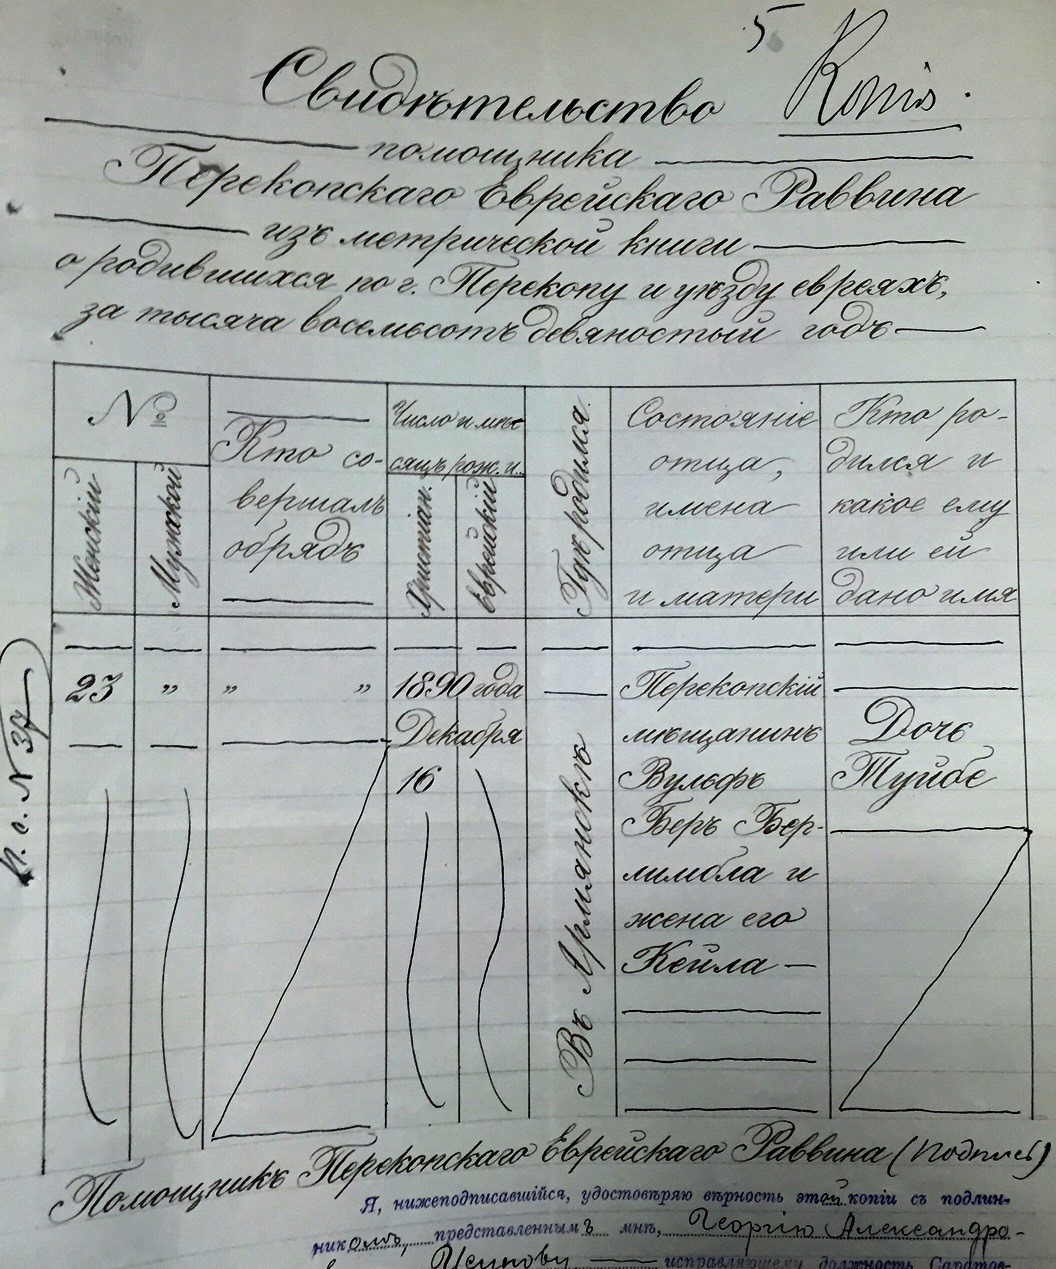 5
Копія.
Свидѣтельство
помощника
Перекопскаго Еврейскаго Раввина
изъ метрической книги
о родившихся по г. Перекопу и уѣзду евреяхъ,
за тысяча восемьсотъ девяностый годъ
№
Женскій
Мужской
Кто со-
вершалъ
обрядъ
Число и мѣ-
сяцъ рож. и..
Христіан.
Еврейскій
Гдѣ родился.
Состояніе
отца,
имена
отца
и матери
Кто ро-
дился и
какое ему
или ей
дано имя
23 „ „ „
1890 года
Декабря
16
Въ Армянскѣ
Перекопскій
мѣщанинъ
Вульфъ
Беръ Бер-
лимбла и
жена его
Кейла
Дочь
Туйбе
п. с. № 37
Помощникъ Перекопскаго Еврейскаго Раввина (подпись)
Я, нижеподписавшійся, удостовѣряю вѣрность этой копіи съ подлин-
никомъ, представленнымъ мнѣ, Георгію Александро-
исправляющему должность Саратов-